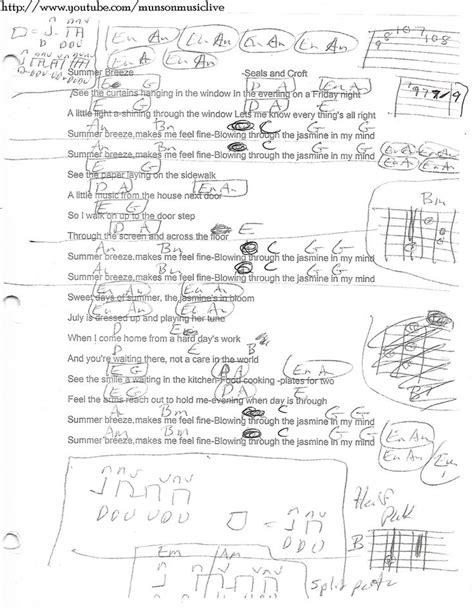 http://www.youtube.com/munsonmusiclive
Em Am Em Am Em Am Em Am
D DDU
Em Am
Summer Breeze -Seals and Croft
E G D A Em Am
See the curtains hanging in the window In the evening on a Friday night
E G D A Em Am
A little light a-shining through the window Lets me know everything's all right
Am Bm C G G
Summer breeze,makes me feel fine-Blowing through the jasmine in my mind
Am Bm C G G Em Am Em Am
Summer breeze,makes me feel fine-Blowing through the jasmine in my mind
E G Em Am
See the paper laying on the sidewalk
D A Em Am
A little music from the house next door
E G
So I walk on up to the door step
D A E
Through the screen and across the floor
Am Bm C G G
Summer breeze,makes me feel fine-Blowing through the jasmine in my mind
Am Bm C G G
Summer breeze,makes me feel fine-Blowing through the jasmine in my mind
Em Am
Sweet days of summer, the jasmine's in bloom
Em Am
July is dressed up and playing her tune
D Em
When I come home from a hard day's work
D
And you're waiting there, not a care in the world
E G D A Em Am
See the smile a waiting in the kitchen-Food cooking -plates for two
E G D A
Feel the arms reach out to hold me-evening when day is through
A Bm C G G
Summer breeze,makes me feel fine-Blowing through the jasmine in my mind
Am Bm C G G Em Am
Summer breeze,makes me feel fine-Blowing through the jasmine in my mind
Bm
DDU UDU
Em Am
B